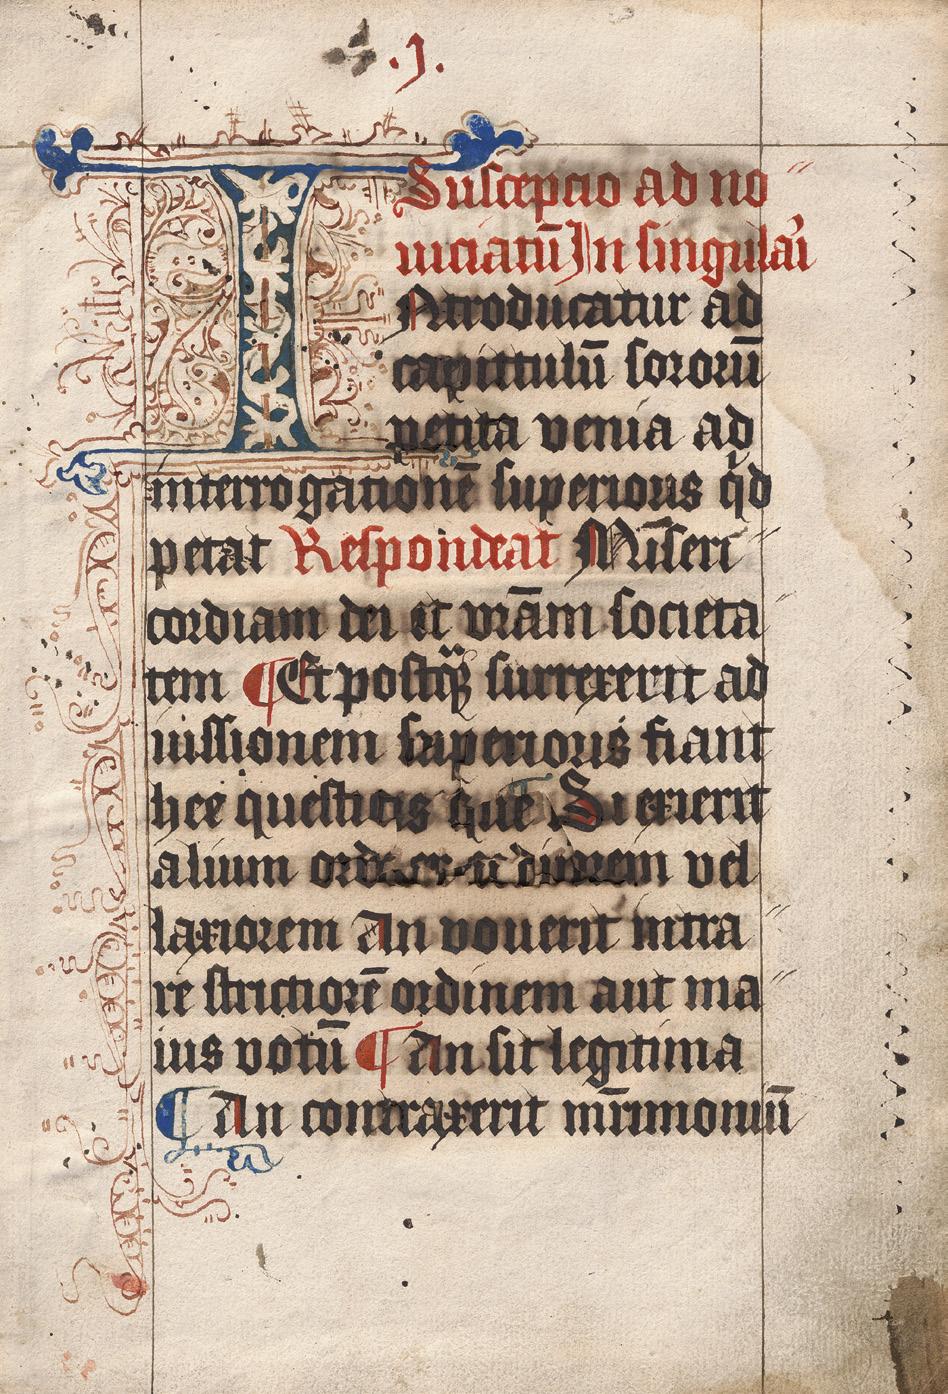 .j.
Suscepcio ad no
uiciatū In singulari
INtroducatur ad
capittulū sororū
petita venia ad
interrogationē superioris qd
petat Respondeat Miseri
cordiam dei et vr̄am societa
tem ¶ Et postqȝ surrexerit ad
iussionem superioris fiant
hee questiōis que Si exierit
alium ordinem vel
laxiorem An vouerit intra
re strictiorē ordinem aut ma
ius votū ¶ An sit legitima
¶ An contraxerit mr̄imoniū